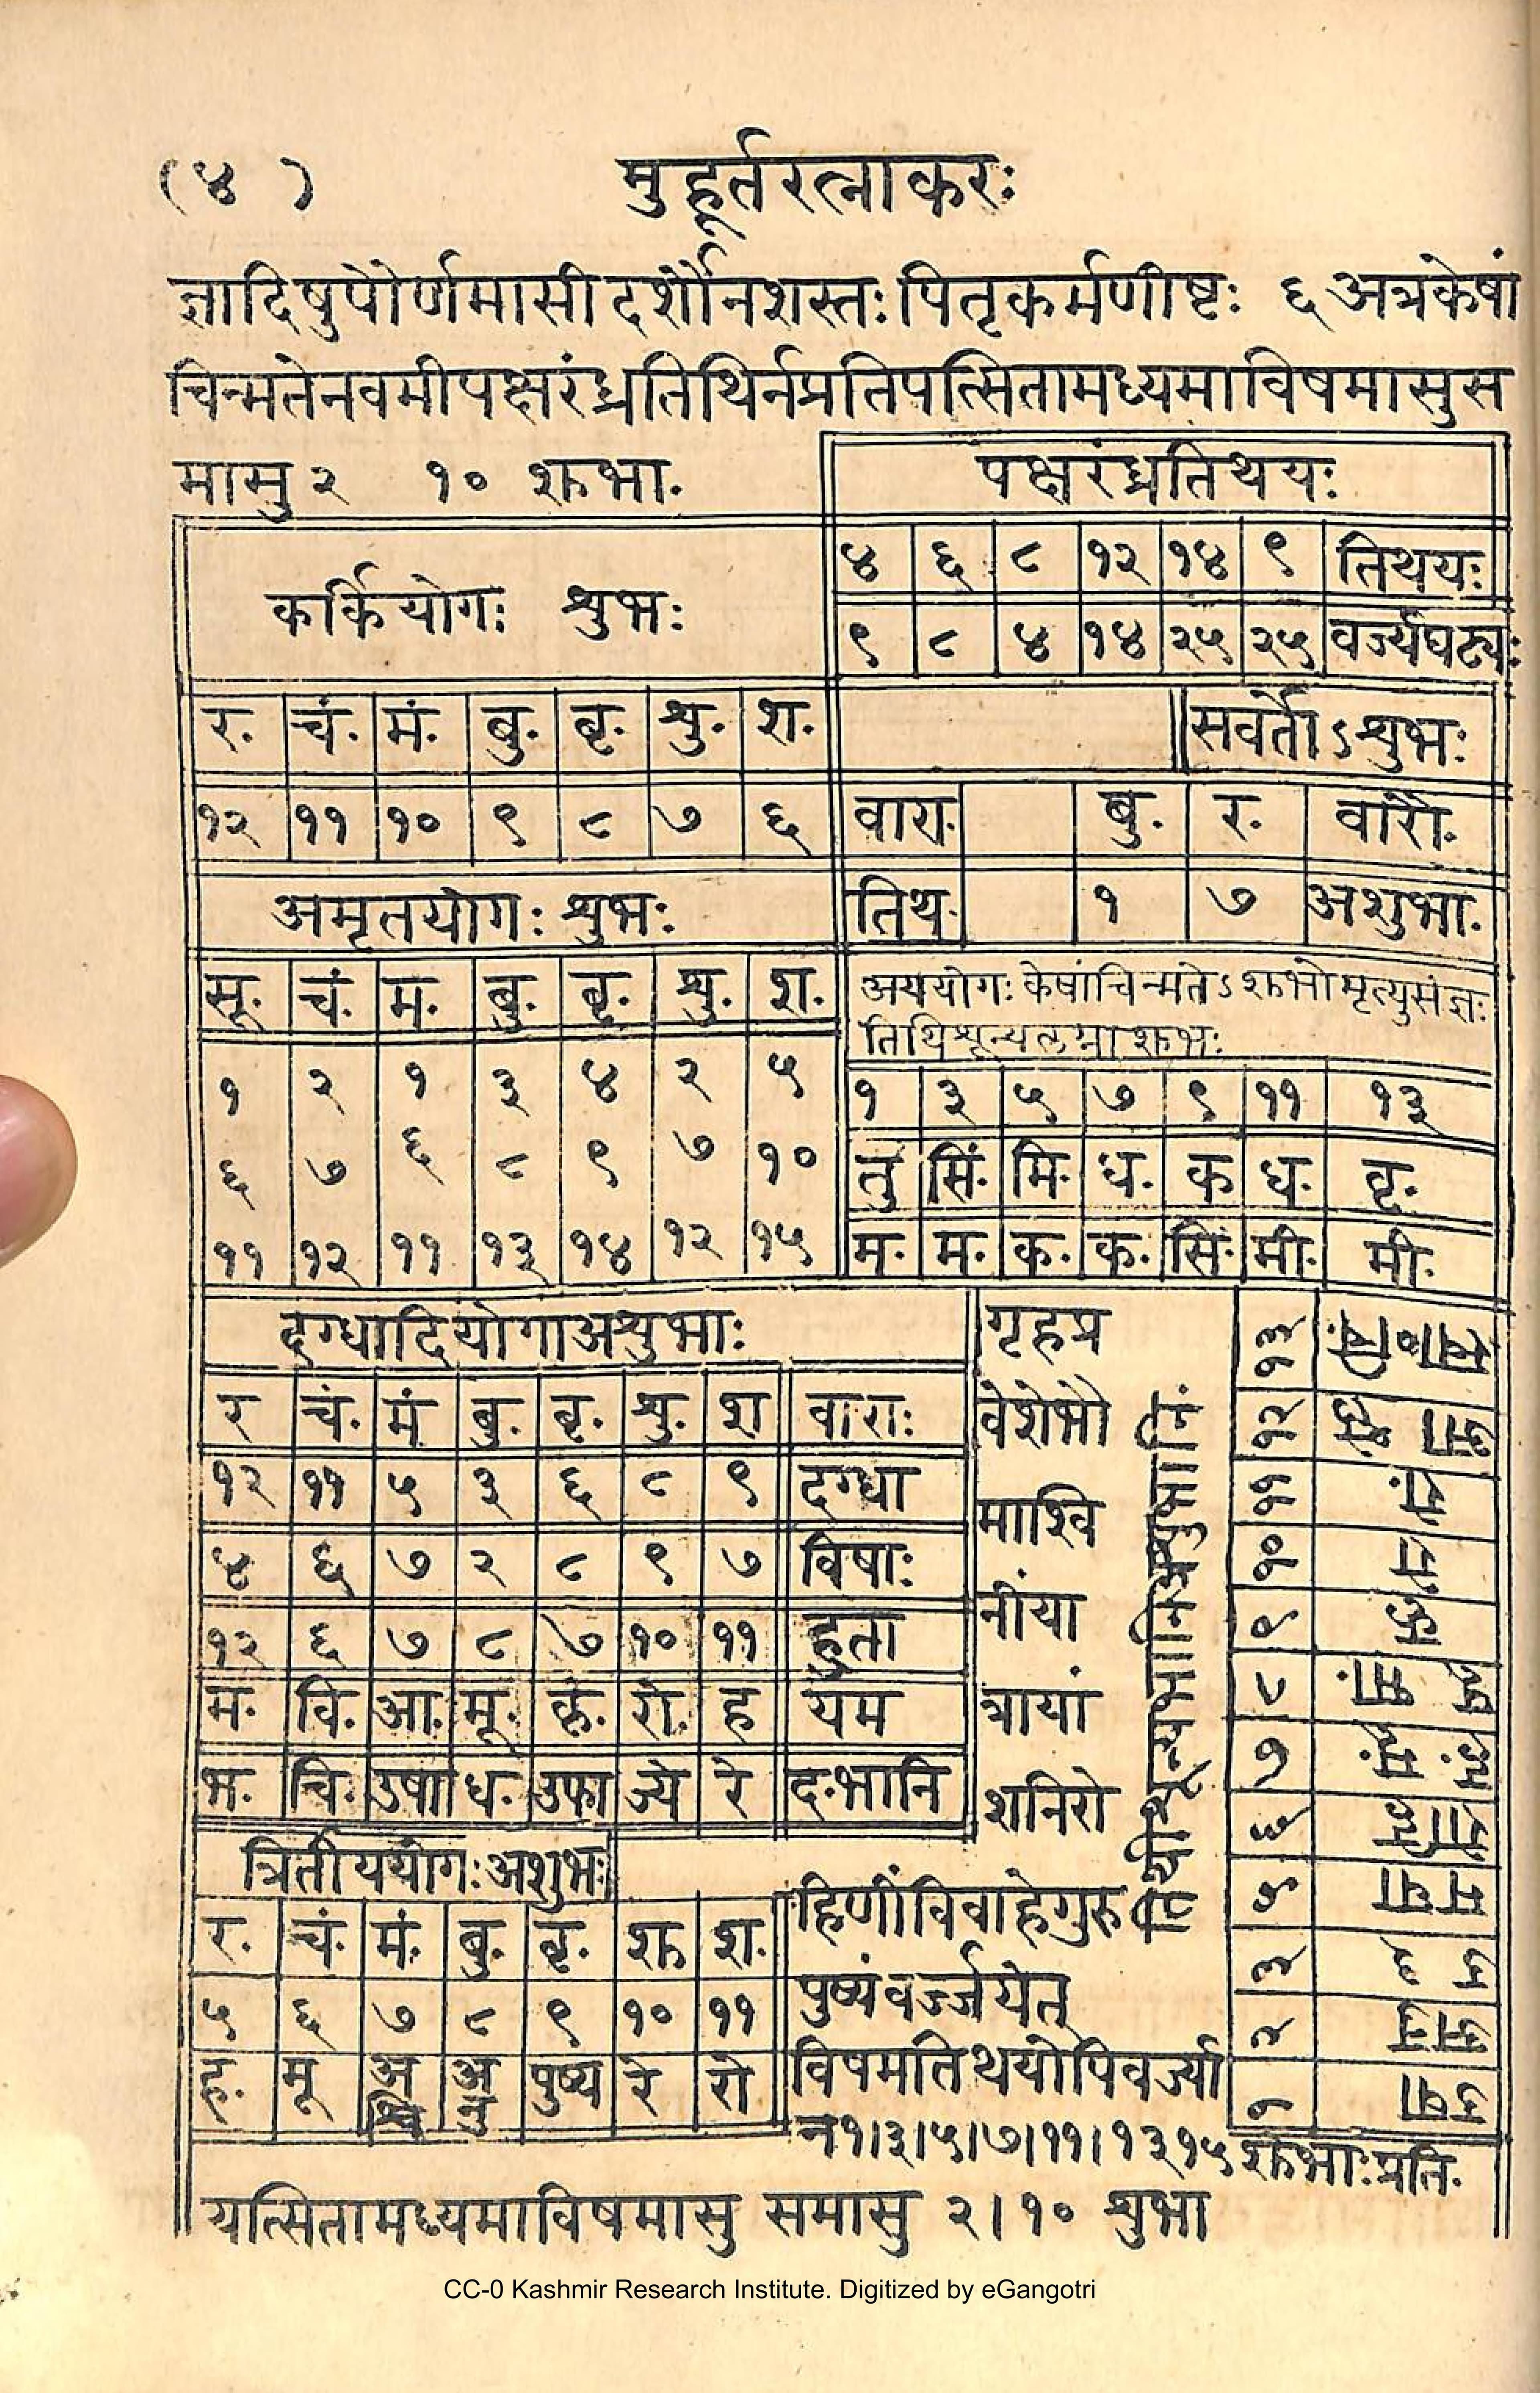 (४ ) मुहूर्तरत्नाकरः
ज्ञादिषुपौर्णमासीदर्शौनशस्तःपितृकर्मणीष्टः ६ अत्रकेषां
चिन्मतेनवमीपक्षरंध्रतिथिर्नप्रतिपत्सितामध्यमाविषमासुस
मासु २ १० शुभा.
पक्षरंध्रतिथयः
४ ६ ८ १२ १४ ९ तिथयः
९ ८ ४ १४ २५ २५ वर्ज्यघट्यः
कर्कियोगः शुभः
र. चं. मं. बु. बृ. शु. श.
१२ ११ १० ९ ८ ७ ६
सवर्तोऽशुभः
वारा. बु. र. वारौ.
तिथ. १ ७ अशुभा.
अमृतयोगः शुभः
सू. चं. म. बु. बृ. शु. श.
१ २ १ ३ ४ २ ५
६ ७ ६ ८ ९ ७ १०
११ १२ ११ १३ १४ १२ १५
अययोगः केषांचिन्मतेऽशुभोमृत्युसंज्ञः
तिथिशून्यलग्नाशुभः
१ ३ ५ ७ ९ ११ १३
तु सिं. मि. ध. क ध. वृ.
म. म. क. क. सि. मी. मी.
दग्धादियोगाअशुभाः
र चं. मं बु. बृ. शु. श वाराः
१२ ११ ५ ३ ६ ८ ९ दग्धा
४ ६ ७ २ ८ ९ ७ विषाः
१२ ६ ७ ८ ७ १० ११ हुता
म. वि. आ. मू. कृ. रो. ह यम
भ. चि. उषा ध. उफा ज्ये रे द.भानि
त्रितीययोगःअशुभः
र. चं. मं. बु. बृ. शु श.
५ ६ ७ ८ ९ १० ११
ह. मू अश्वि अनु पुष्य रे रो
गृहप्र
वेशेभौ
माश्वि
नींया
त्रायां
शनिरो
हिणींविवाहेगुरु
पुष्यंवर्ज्जयेत्
विषमतिथयोपिवर्ज्या
न१।३।५।७।११।१३१५शुभाःप्रति.
१ उषा
२ अनु
३ उ
५ मघा
६
७
८
९ कृ
१०
११
१२
१३
यत्सितामध्यमाविषमासु समासु २।१० शुभा
CC-0 Kashmir Research Institute. Digitized by eGangotri